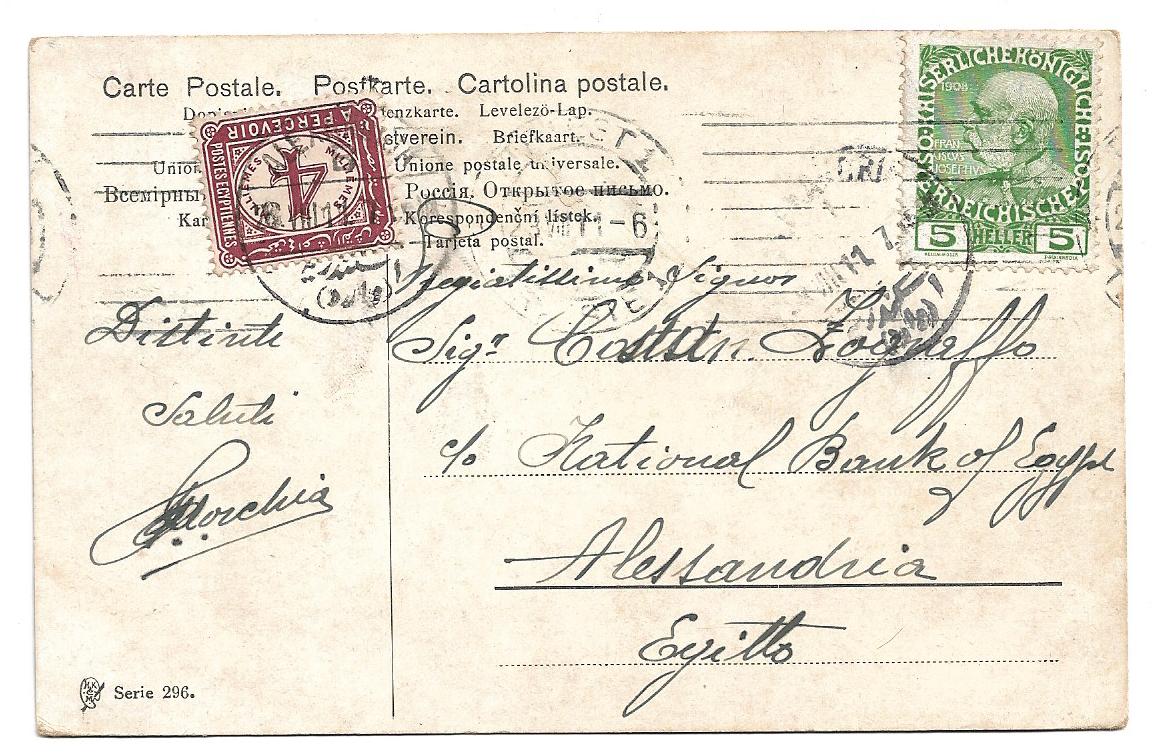 Carte Postale. Postkarte. Cartolina postale.
enzkarte. Levelező-Lap.
stverein. Briefkaart.
Union Unione postale universale.
Всемірны Россія. Открытое письмо.
Kar Korespondenční lístek.
Tarjeta postal.
A PERCEVOIR
POSTES EGYPTIENNES
4
MILLIEMES
MILLIEMES
KAISERLICHE KÖNIGLICHE ÖSTERREICHISCHE POST
1908
FRAN
CISCVS
JOSEPHVS
5 HELLER 5
23 VIII 11-6
VIII 11 7
Distinti
Saluti
Pregiatissimo Signor
Sigr
c/o National Bank of Egypt
Alessandria
Egitto
Serie 296.